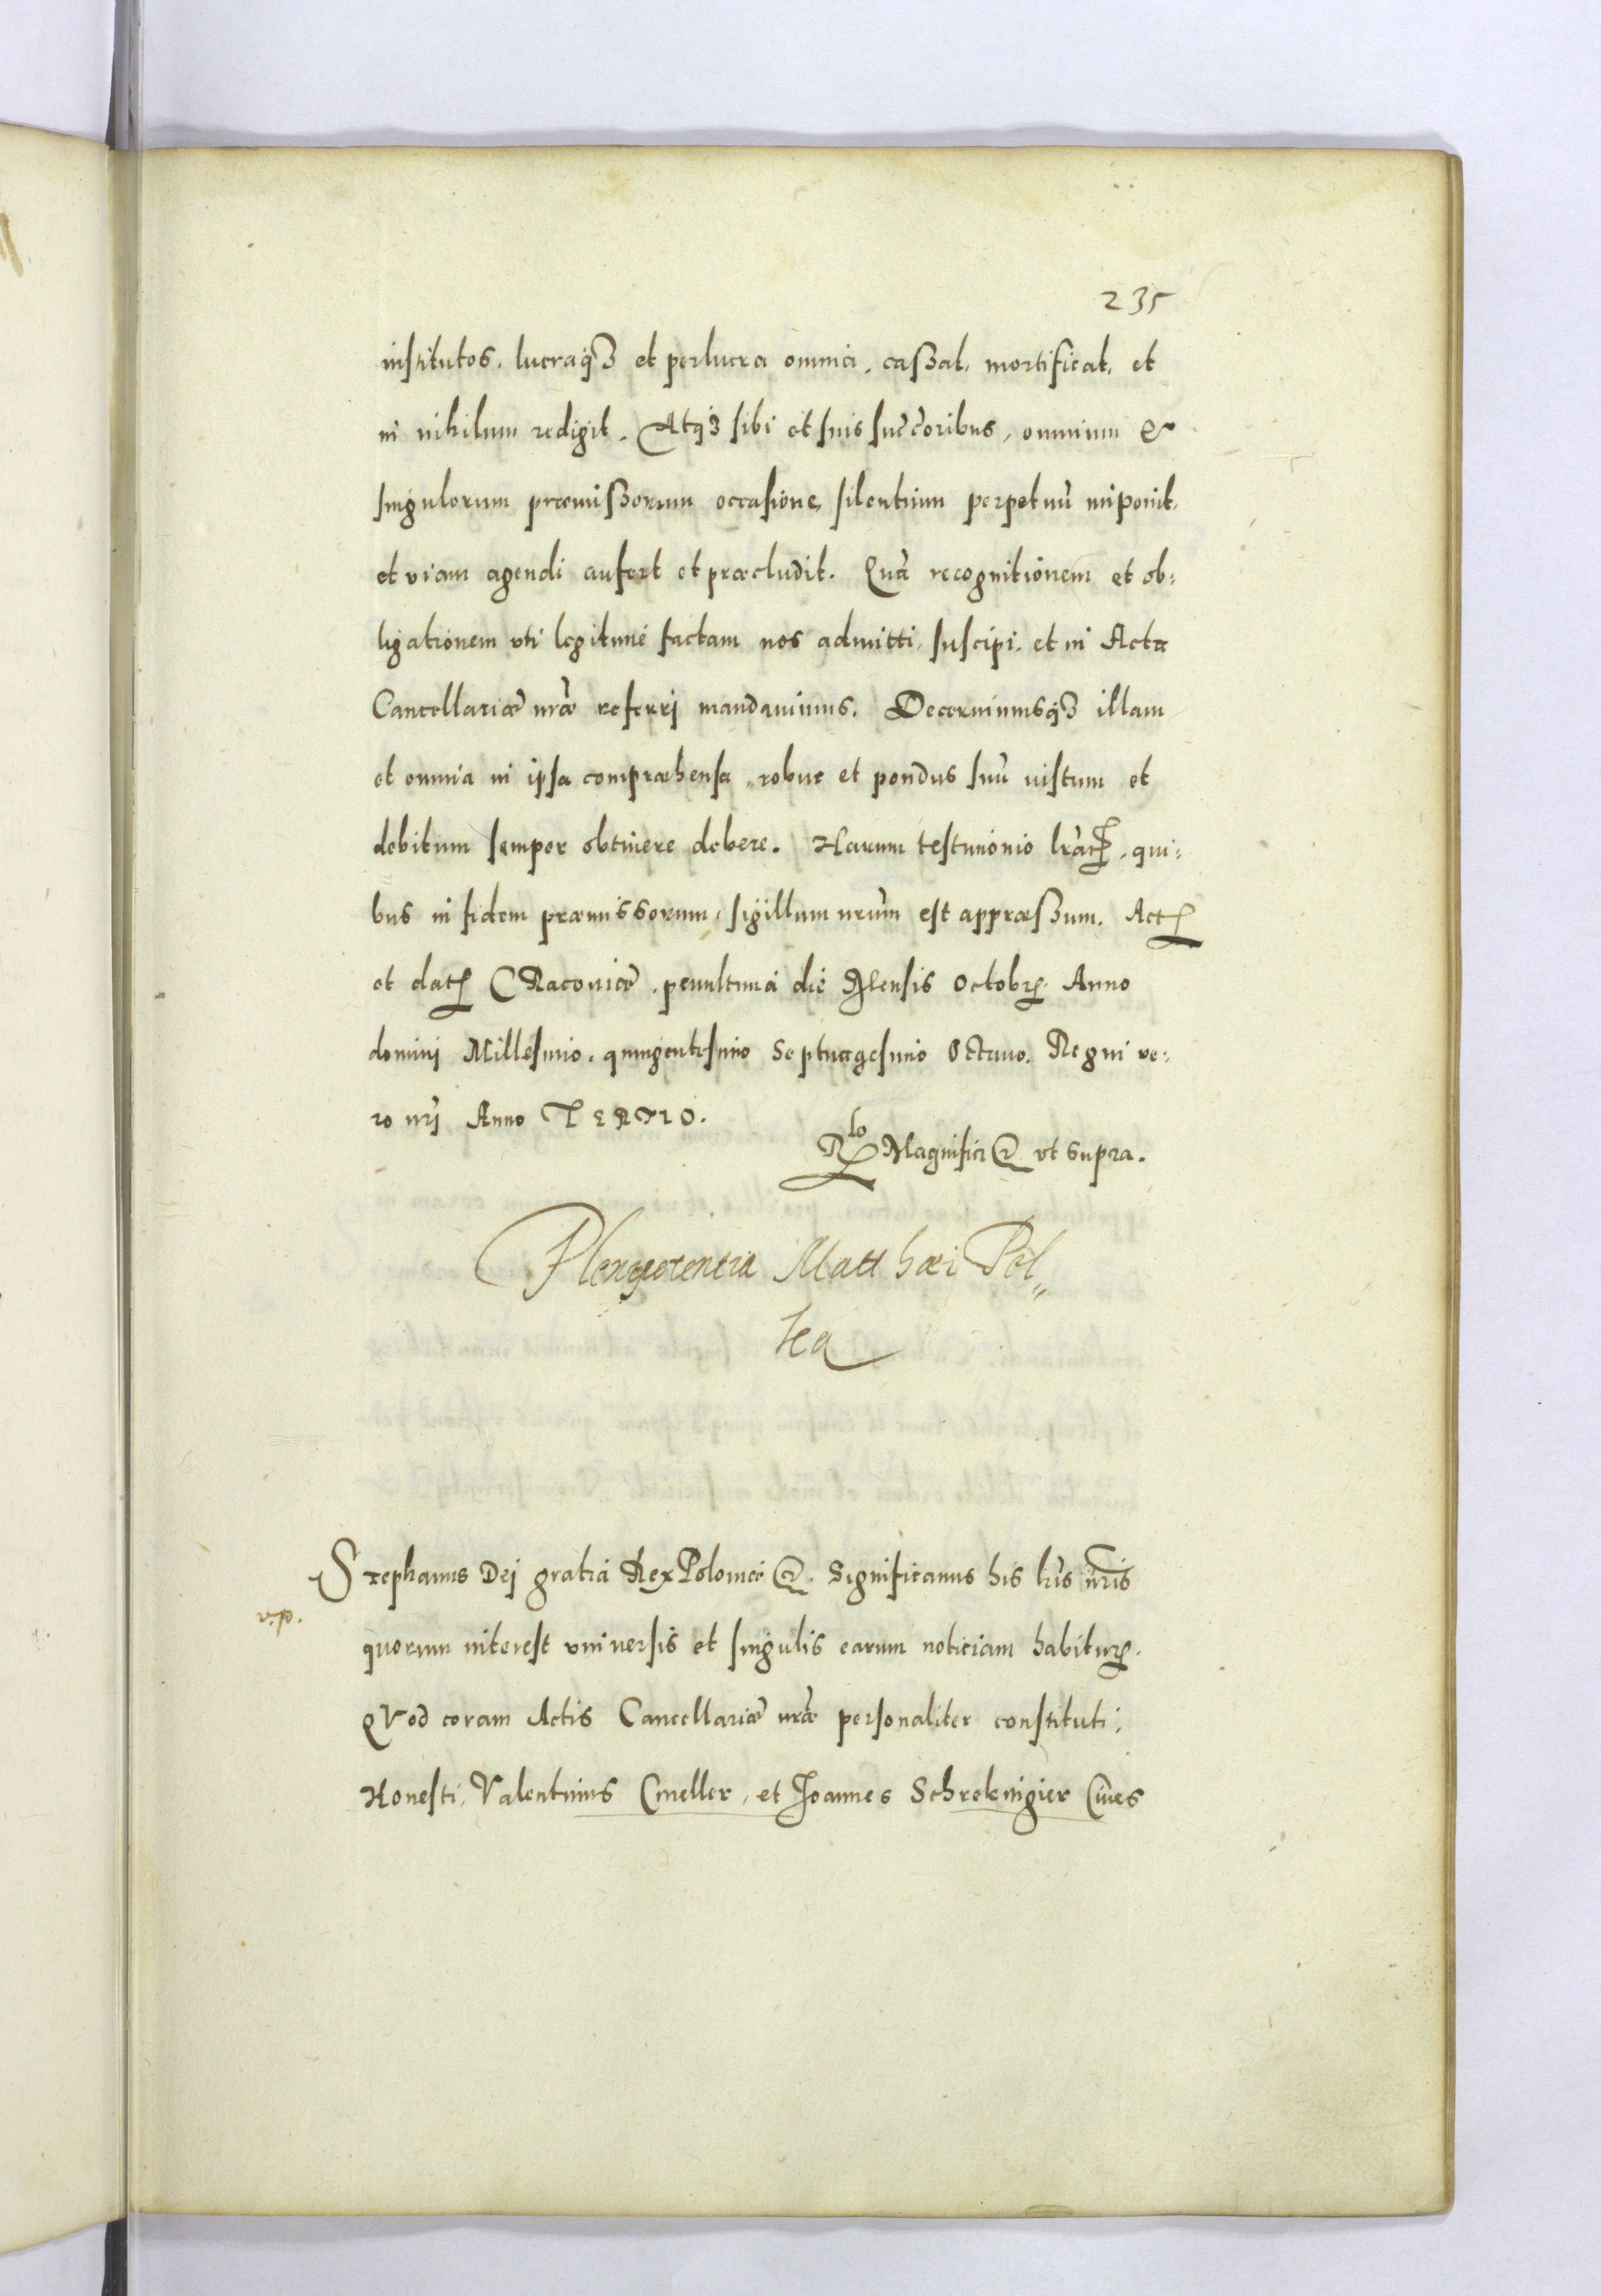 235
institutos, lucraq₃ et perlucra omnia, cassat, mortificat, et
in nihilum redigit. Atq₃ sibi et suis succ̄oribus, omnium &
singulorum præmissorum occasione, silentium perpetuū imponit,
et viam agendi aufert et præcludit. Quā recognitionem et ob:
ligationem vti legitimè factam nos admitti, suscipi, et in Acta
Cancellariæ nr̄æ referri mandavimus. Decernimusq₃ illam
et omnia in ipsa compræhensa, robur et pondus suū iustum et
debitum semper obtinere debere. Harum testimonio lr̄aꝝ, qui:
bus in fidem præmissorum, sigillum nr̄um est appræssum. Actꝝ
et datꝝ CRacoviæ, penultima die Mensis Octobrꝭ. Anno
domini Millesimo, quingentesimo Septuagesimo Octavo. Regni ve:
ro nr̄j Anno TERTIO.
Rlo Magnifici @ vt supra.
Plenipotentia Matthæi Pel„
ka
Stephanus Dej gratia Rex Poloniæ @. Significamus his lr̄is nr̄is
v.p.
quorum interest vniversis et singulis earum noticiam habiturꝭ.
QVod coram Actis Cancellariæ nr̄æ personaliter constituti,
Honesti, Valentinus Cmeller, et Joannes Schrekingier Cives